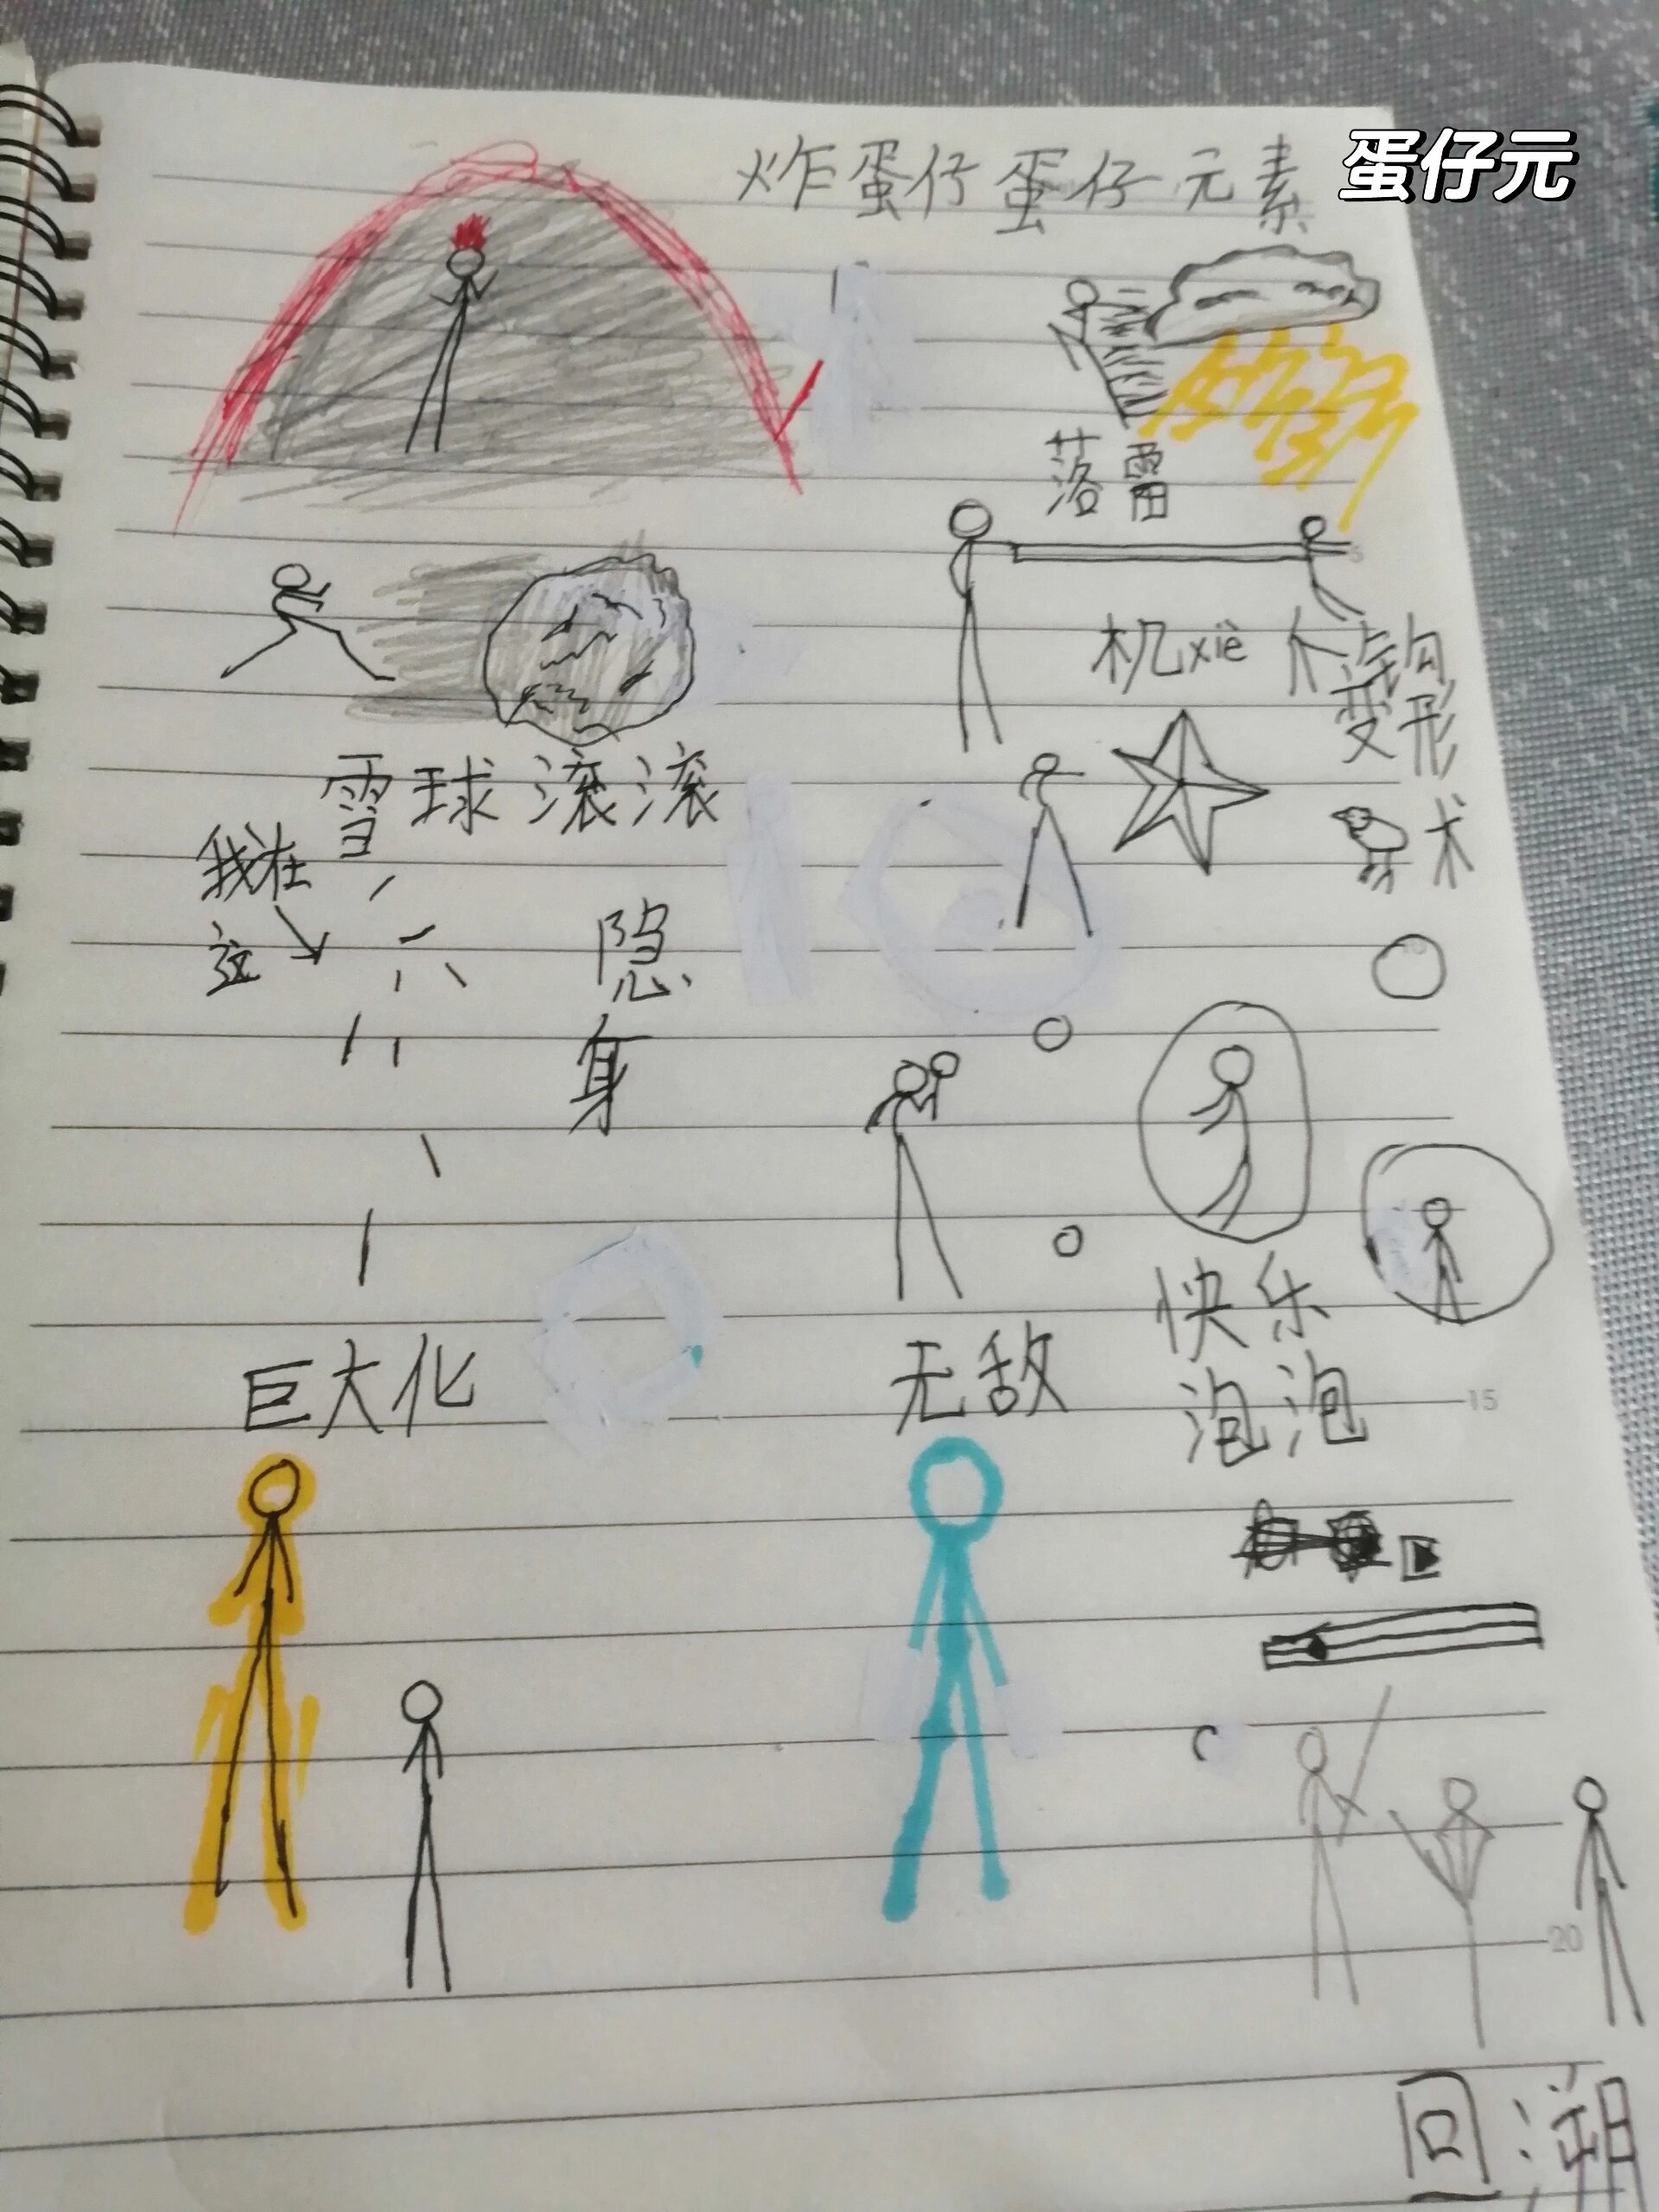 炸蛋仔蛋仔元素
蛋仔元
落雷
机xiè
钩
变形
术
雪球滚滚
我在
这
隐
身
快乐
泡泡
巨大化
无敌
15
20
回溯